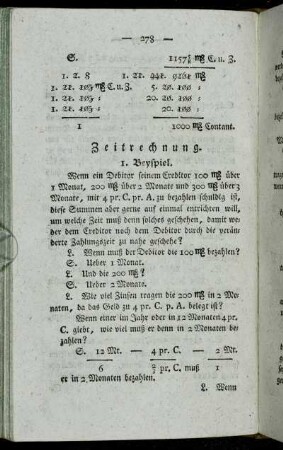 — 278 —
S. 1157⅞ m℔ C. u. Z.
1. 2. 8 1. 22. 441. 9261 m℔
1. 22. 103 m℔ C. u. Z. 5. 20. 100 :
1. 22. 103 : 20. 100 :
1. 22. 103 : 20. 100 :
1 1000 m℔ Contant.
Zeitrechnung.
1. Beyspiel.
Wenn ein Debitor seinem Creditor 100 m℔ über
1 Monat, 200 m℔ über 2 Monate und 300 m℔ über 3
Monate, mit 4 pr. C. pr. A. zu bezahlen schuldig ist,
diese Summen aber gerne auf einmal entrichten will,
um welche Zeit muß denn solches geschehen, damit wo-
der dem Creditor noch dem Debitor durch die verän-
derte Zahlungszeit zu nahe geschehe?
L. Wenn muß der Debitor die 100 m℔ bezahlen?
S. Ueber 1 Monat.
L. Und die 200 m℔?
S. Ueber 2 Monate.
L. Wie viel Zinsen tragen die 200 m℔ in 2 Mo-
naten, da das Geld zu 4 pr. C. p. A. belegt ist?
Wenn einer im Jahr oder in 12 Monaten 4 pr.
C. giebt, wie viel muß er denn in 2 Monaten be-
zahlen?
S. 12 Mt. — 4 pr. C. — 2 Mt.
6 ⅔ pr. C. muß 1
er in 2 Monaten bezahlen.
L. Wenn